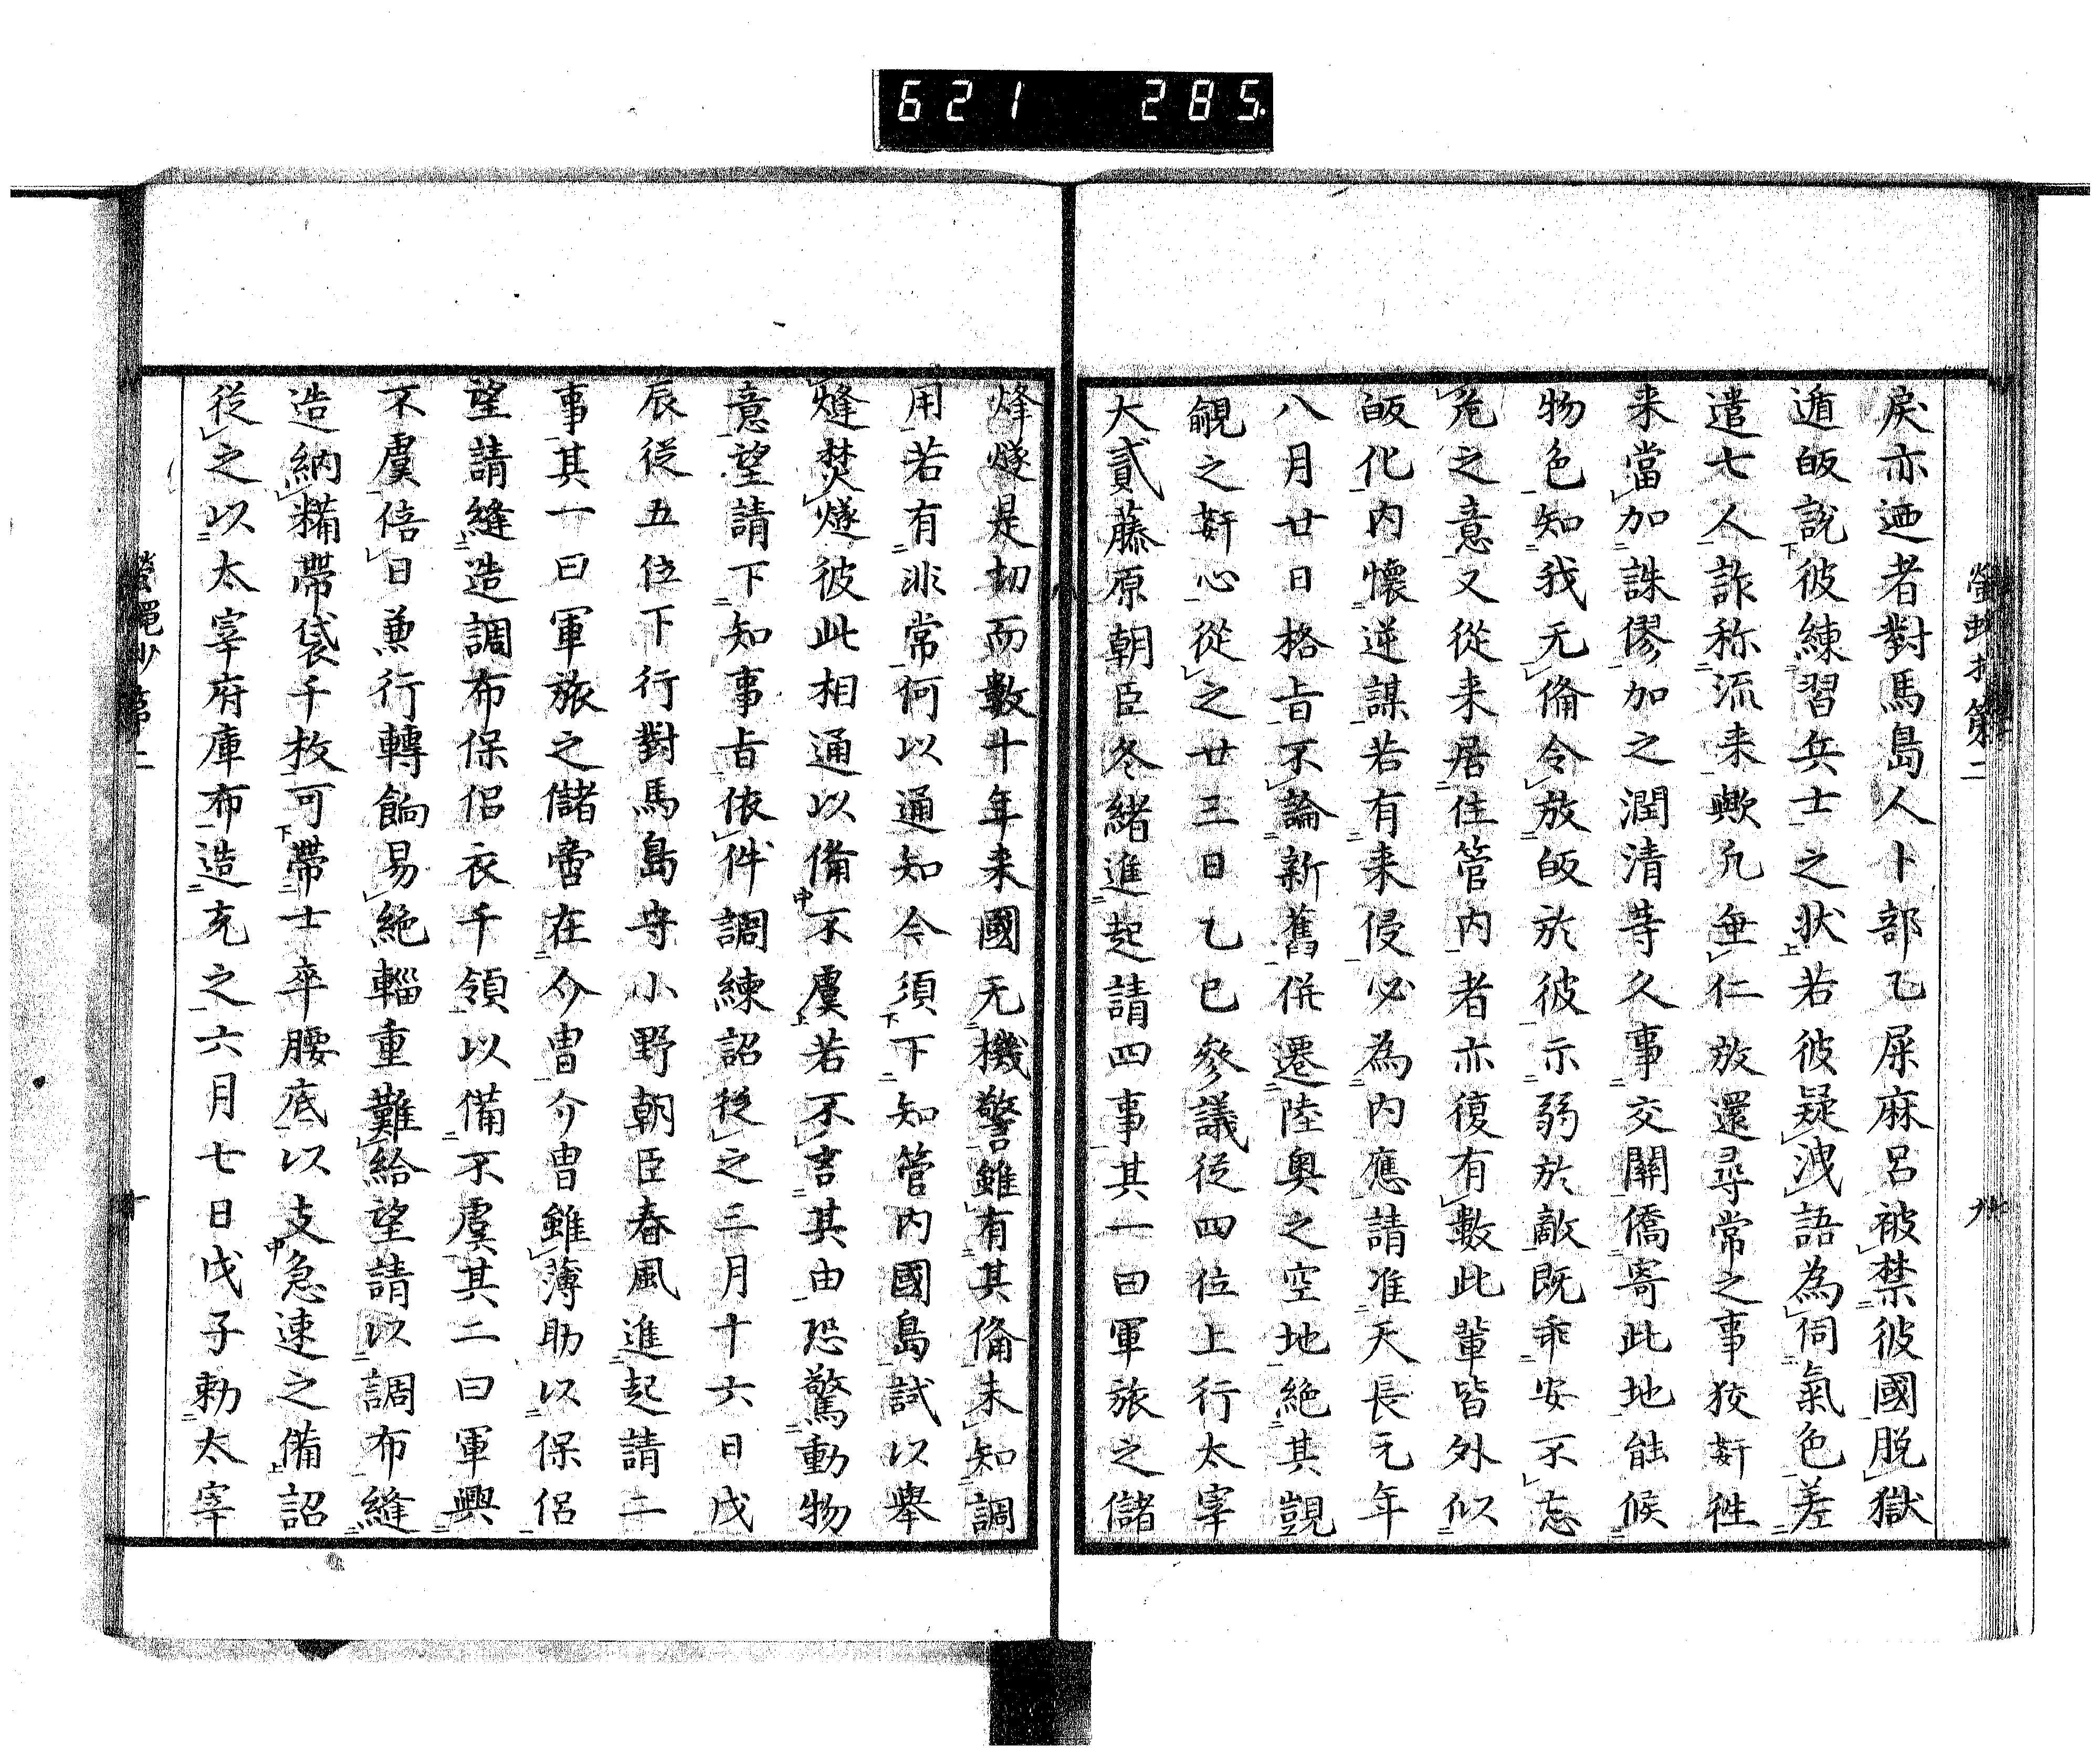 621 285.
戾亦迺者對馬島人卜部乙屎麻呂被禁彼國脱獄
遁皈說彼練習兵士之状若彼疑洩語為伺氣色差
遣七人詐称流来歟凢垂仁放還尋常之事狡姧徃
来當加誅僇加之潤清等久事交關僑寄此地能候
物色知我无俻令放皈於彼示弱於敵既乖安不忘
危之意又從来居住管内者亦復有數此輩皆外似
皈化内懷逆謀若有来侵必為内應請准天長元年
八月廿日格旨不論新舊併遷陸奥之空地絶其覬
覦之姧心從之廿三日乙巳參議従四位上行太宰
大貳藤原朝臣冬緒進起請四事其一曰軍旅之儲
烽燧是切而數十年来國无機警雖有其俻未知調
用若有非常何以通知今須下知管内國島試以舉
烽焚燧彼此相通以備不虞若不言其由恐驚動物
意望請下知事旨依件調練詔従之三月十六日戊
辰従五位下行對馬島守小野朝臣春風進起請二
事其一曰軍旅之儲啻在介冑介冑雖薄助以保侶
望請縫造調布保侶衣千領以備不虞其二曰軍興
不虞倍日兼行轉餉易絶輜重難給望請以調布縫
造納糒帶袋千枚可帶士卒腰底以支急速之備詔
従之以太宰府庫布造充之六月七日戊子勅太宰
第二
十